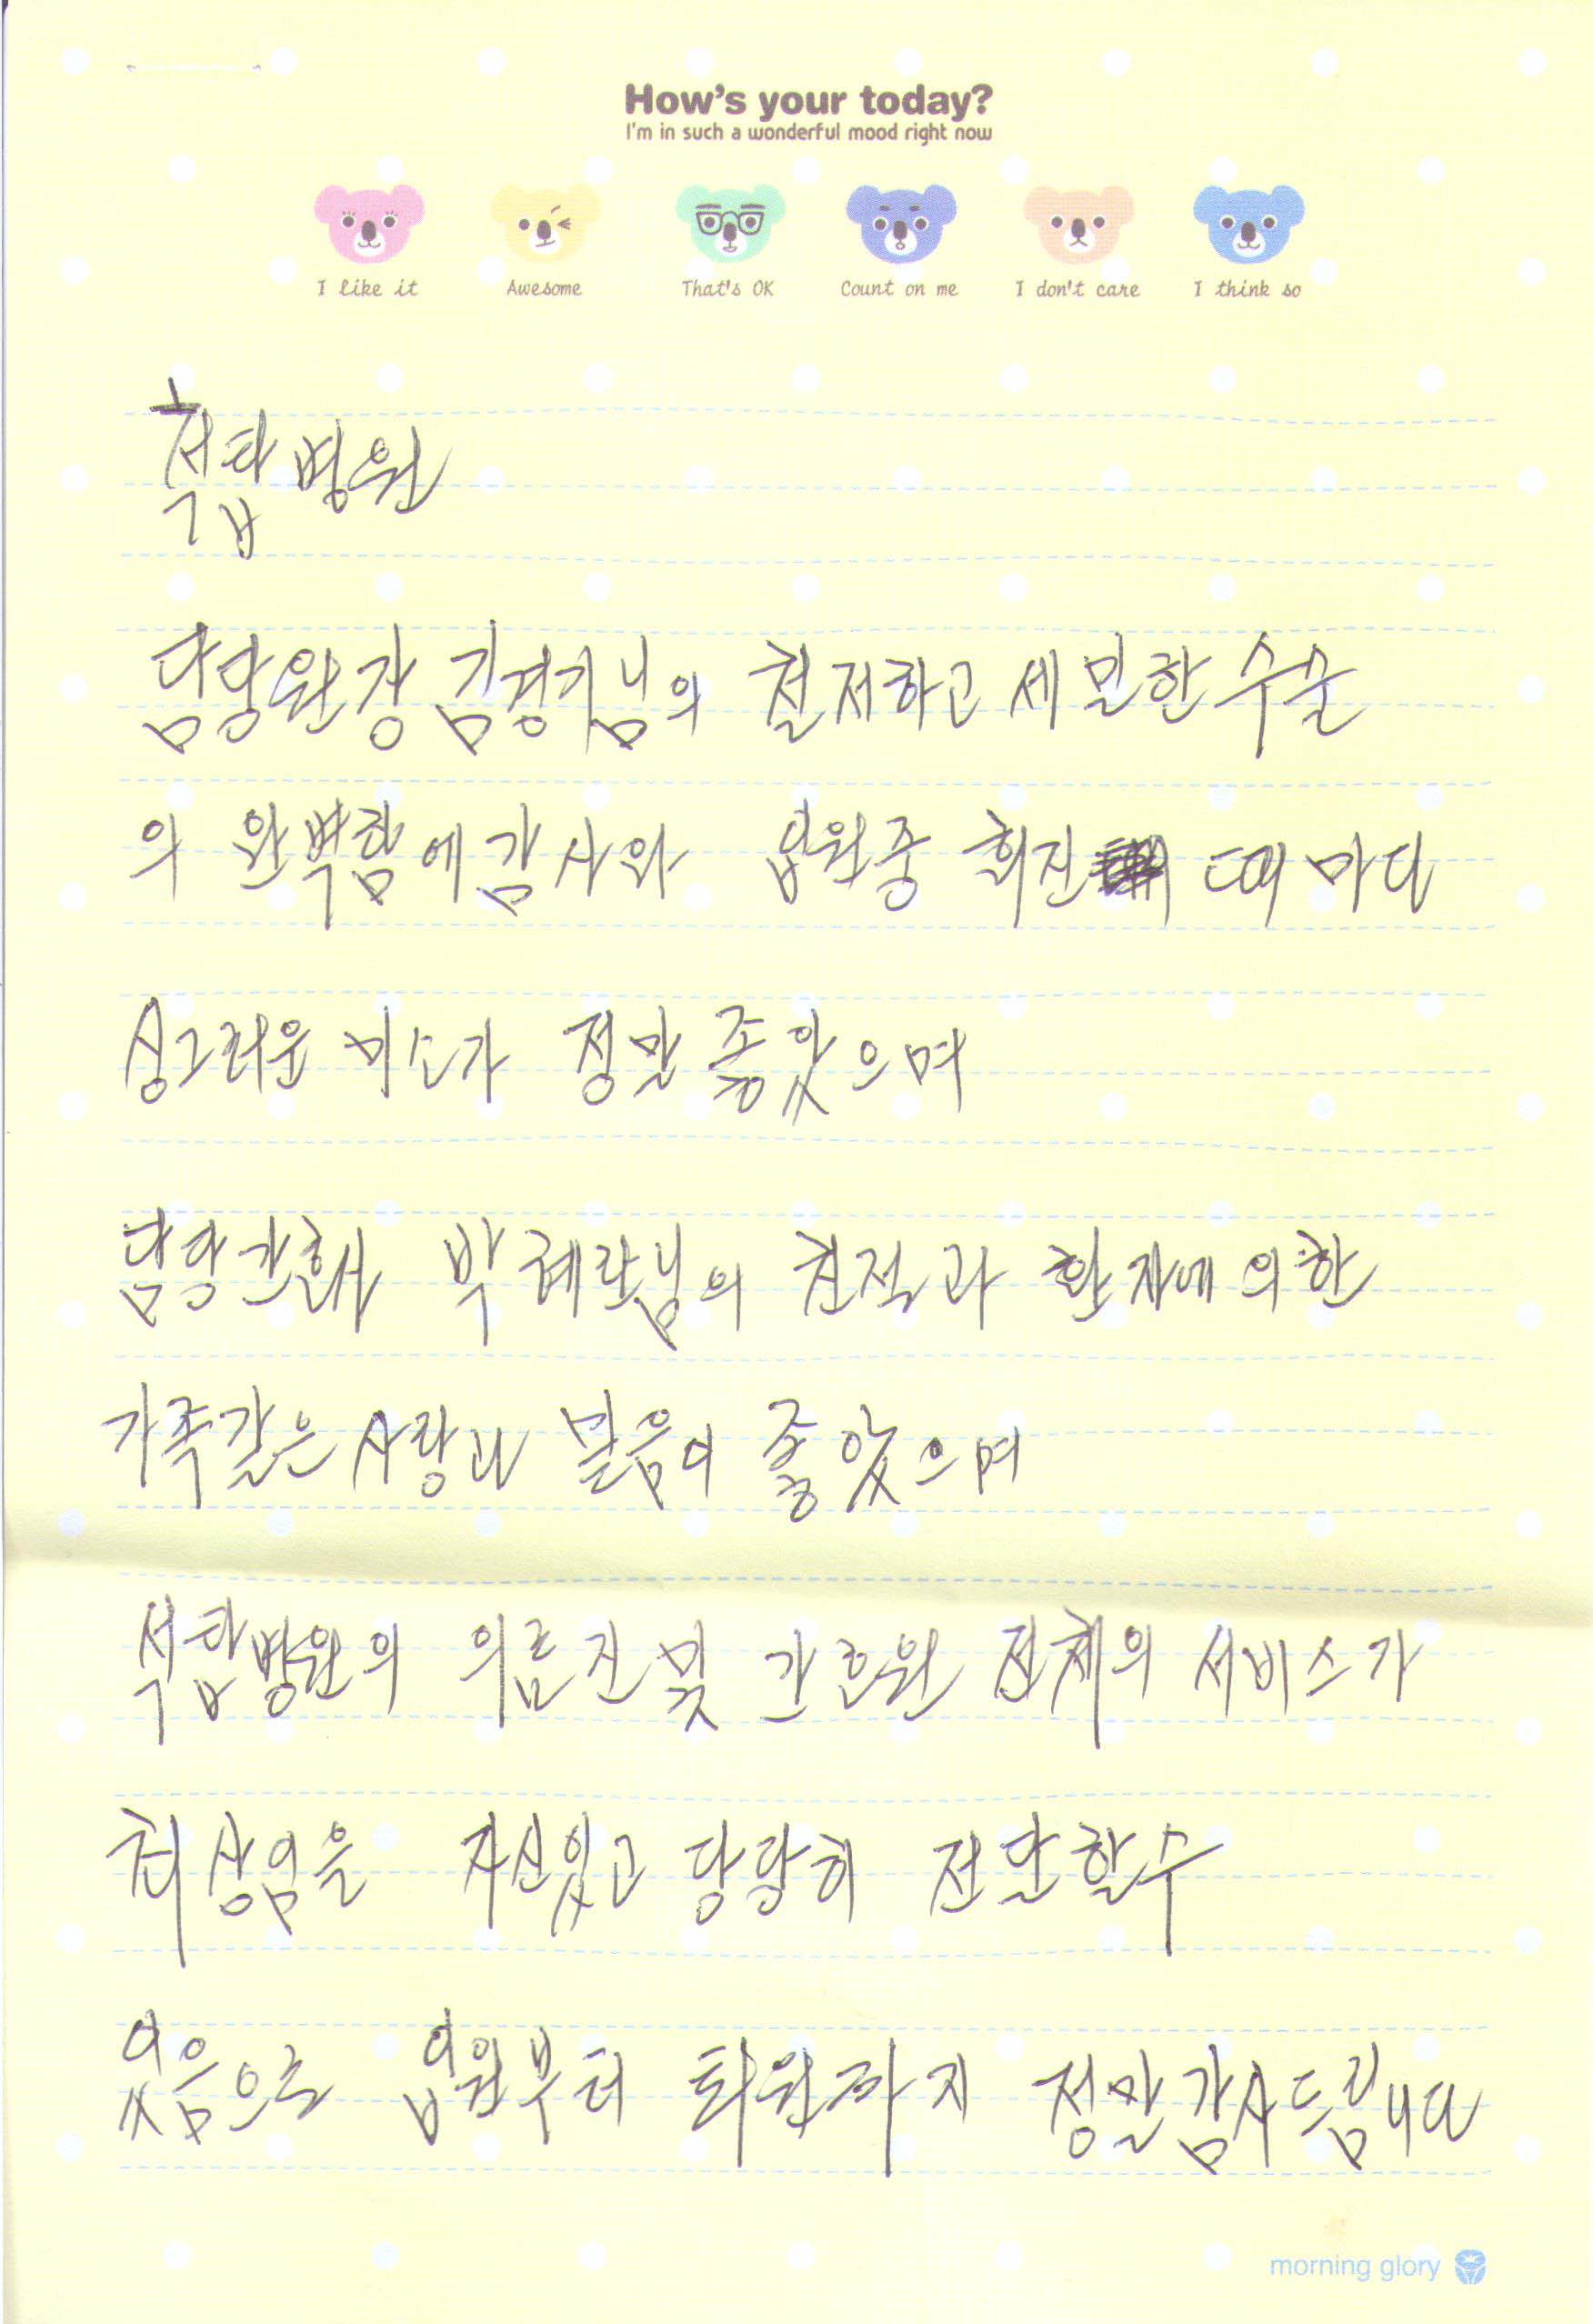 How's your today?
I'm in such a wonderful mood right now
I like it Awesome That's OK Count on me I don't care I think so
척탑병원
담당원장 김경기님의 철저하고 세밀한 수술
의 완벽함에 감사와 입원중 회진 때마다
싱그러운 미소가 정말 좋았으며
담당간호사 박혜란님의 친절과 환자에 의한
가족같은 사랑과 믿음이 좋았으며
석탑병원의 의료진 및 간호원 전체의 서비스가
최상임을 자신있고 당당히 전달할수
있음으로 입원부터 퇴원까지 정말 감사드립니다
morning glory